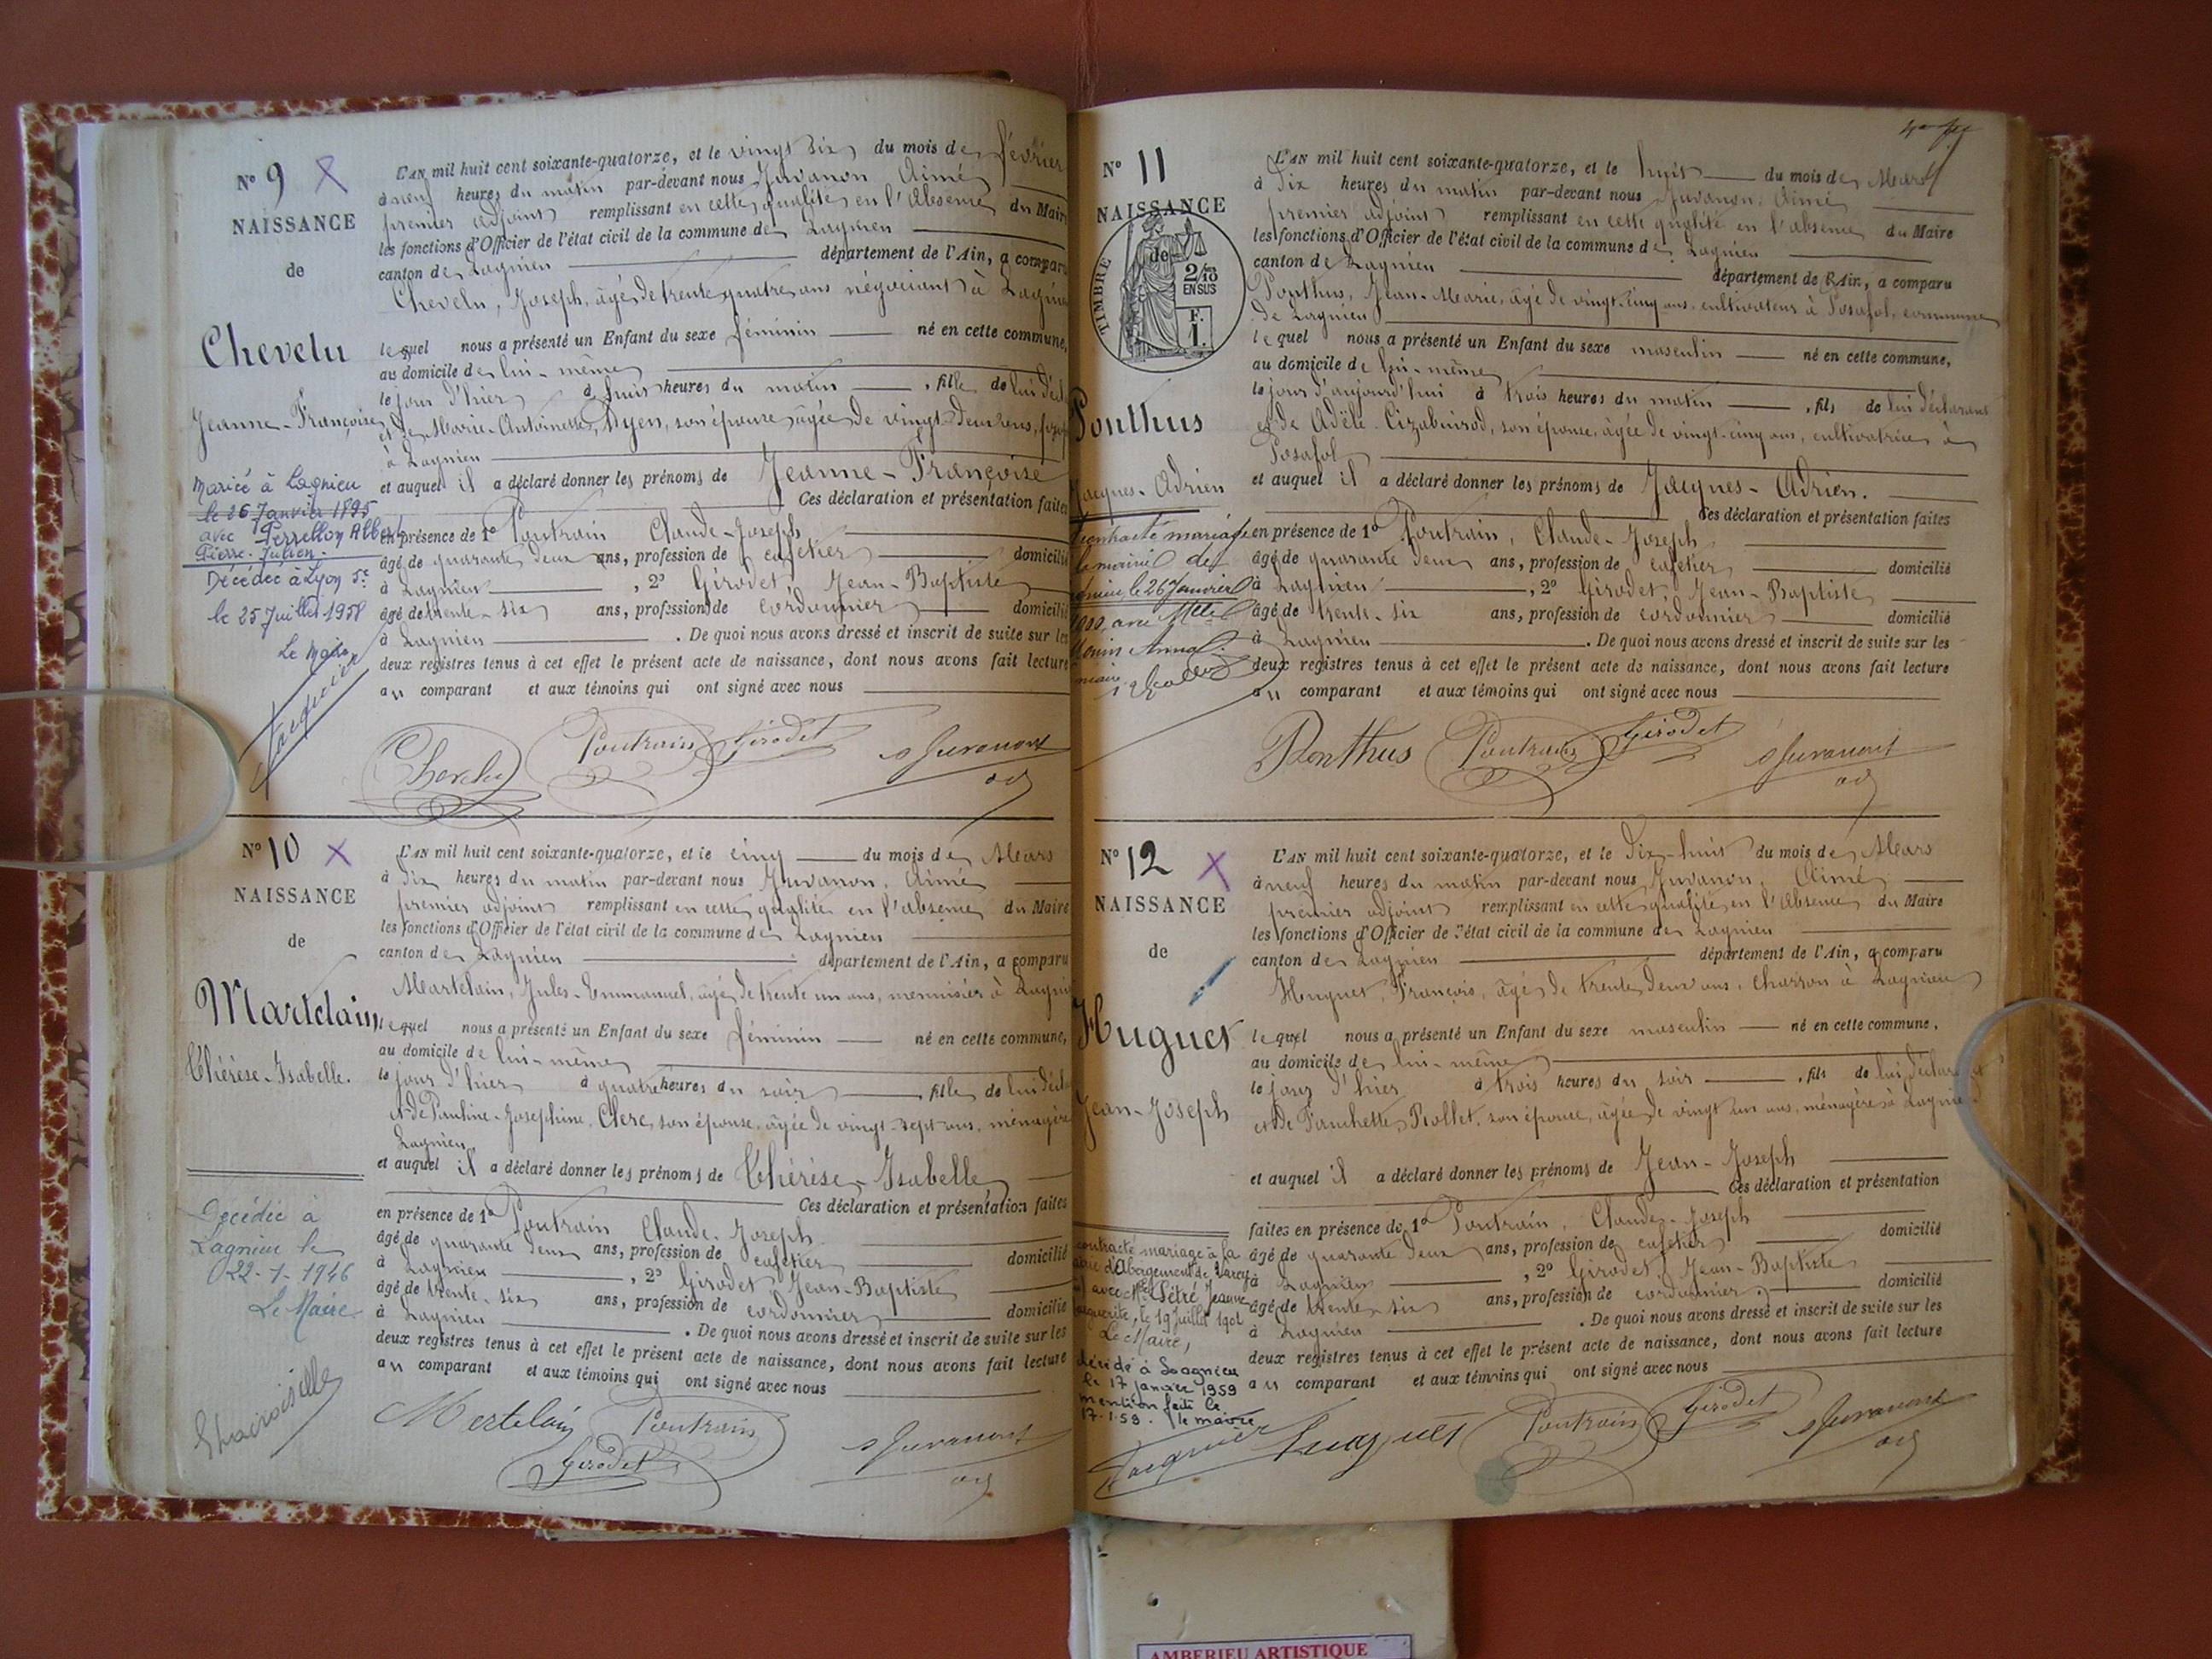 N° 9
NAISSANCE
de
Chevelu
Jeanne-Françoise
Mariée à Lagnieu
le 26 Janvier 1895
avec Perrellon Albert
Pierre-Julien.
Décédée à Lyon 5e
le 25 Juillet 1958
Le Maire
L'AN mil huit cent soixante-quatorze, et le vingt six du mois de février
à neuf heures du matin par-devant nous Juvanon Aimé
premier adjoint remplissant en cette qualité en l'absence du Maire
les fonctions d'Officier de l'état civil de la commune de Lagnieu
canton de Lagnieu département de l'Ain, a comparu
Chevelu, Joseph, âgé de trente quatre ans négociant à Lagnieu
lequel nous a présenté un Enfant du sexe féminin né en cette commune,
au domicile de lui-même
le jour d'hier à huit heures du matin, fille de lui décl
et de Marie-Antoinette Dyen, son épouse âgée de vingt-deux ans,
à Lagnieu
et auquel il a déclaré donner les prénoms de Jeanne-Françoise
Ces déclaration et présentation faites
en présence de 1° Poutrain Claude-Joseph
âgé de quarante deux ans, profession de cafetier domicilié
à Lagnieu, 2° Girodet, Jean-Baptiste
âgé de trente-six ans, profession de cordonnier domicilié
à Lagnieu. De quoi nous avons dressé et inscrit de suite sur les
deux registres tenus à cet effet le présent acte de naissance, dont nous avons fait lecture
au comparant et aux témoins qui ont signé avec nous
Chevelu Poutrain Girodet Juvanont
adj
N° 10
NAISSANCE
de
Martelain
Thérèse-Isabelle.
Décédée à
Lagnieu le
22-1-1946
Le Maire
L'AN mil huit cent soixante-quatorze, et le cinq du mois de Mars
à dix heures du matin par-devant nous Juvanon, Aimé
premier adjoint remplissant en cette qualité en l'absence du Maire
les fonctions d'Officier de l'état civil de la commune de Lagnieu
canton de Lagnieu département de l'Ain, a comparu
Martelain, Jules-Emmanuel, âgé de trente un ans, menuisier à Lagnieu
lequel nous a présenté un Enfant du sexe féminin né en cette commune,
au domicile de lui-même
le jour d'hier à quatre heures du soir, fille de lui décl
et de Pauline-Josephine, Clerc, son épouse âgée de vingt-sept ans, ménagère
Lagnieu
et auquel il a déclaré donner les prénoms de Thérèse-Isabelle
Ces déclaration et présentation faites
en présence de 1° Poutrain Claude-Joseph
âgé de quarante deux ans, profession de cafetier domicilié
à Lagnieu, 2° Girodet, Jean-Baptiste
âgé de trente-six ans, profession de cordonnier domicilié
à Lagnieu. De quoi nous avons dressé et inscrit de suite sur les
deux registres tenus à cet effet le présent acte de naissance, dont nous avons fait lecture
au comparant et aux témoins qui ont signé avec nous
Martelain Poutrain
Girodet Juvanont
adj
N° 11
NAISSANCE
de
TIMBRE
2/10
EN SUS
F.
1.
Ponthus
Jacques-Adrien
Contracté mariage
le 26 Janvier
avec Melle
L'AN mil huit cent soixante-quatorze, et le huit du mois de Mars
à dix heures du matin par-devant nous Juvanon, Aimé
premier adjoint remplissant en cette qualité en l'absence du Maire
les fonctions d'Officier de l'état civil de la commune de Lagnieu
canton de Lagnieu département de l'Ain, a comparu
Ponthus, Jean-Marie, âgé de vingt-cinq ans, cultivateur à Posafol, commune
de Lagnieu
lequel nous a présenté un Enfant du sexe masculin né en cette commune,
au domicile de lui-même
le jour d'aujourd'hui à trois heures du matin, fils de lui déclarant
et de Adèle, son épouse, âgée de vingt-cinq ans, cultivatrice à
Posafol
et auquel il a déclaré donner les prénoms de Jacques-Adrien.
Ces déclaration et présentation faites
en présence de 1° Poutrain, Claude-Joseph
âgé de quarante deux ans, profession de cafetier domicilié
à Lagnieu, 2° Girodet, Jean-Baptiste
âgé de trente-six ans, profession de cordonnier domicilié
à Lagnieu. De quoi nous avons dressé et inscrit de suite sur les
deux registres tenus à cet effet le présent acte de naissance, dont nous avons fait lecture
au comparant et aux témoins qui ont signé avec nous
Ponthus Poutrain Girodet Juvanont
adj
N° 12
NAISSANCE
de
Huguet
Jean-Joseph
contracté mariage à la
d'Abergement de Varey
avec Melle Pétré Jeanne
le 19 Juillet 1901
Le Maire,
décédé à Lagnieu
le 17 janvier 1959
mention faite le
17-1-59. le maire
L'AN mil huit cent soixante-quatorze, et le dix-huit du mois de Mars
à neuf heures du matin par-devant nous Juvanon, Aimé
premier adjoint remplissant en cette qualité en l'absence du Maire
les fonctions d'Officier de l'état civil de la commune de Lagnieu
canton de Lagnieu département de l'Ain, a comparu
Huguet, François, âgé de trente deux ans, charron à Lagnieu
lequel nous a présenté un Enfant du sexe masculin né en cette commune,
au domicile de lui-même
le jour d'hier à trois heures du soir, fils de lui déclarant
et de Fanchette Piollet, son épouse, âgée de vingt un ans, ménagère à Lagnieu
et auquel il a déclaré donner les prénoms de Jean-Joseph
Ces déclaration et présentation
faites en présence de 1° Poutrain, Claude-Joseph
âgé de quarante deux ans, profession de cafetier domicilié
à Lagnieu, 2° Girodet, Jean-Baptiste
âgé de trente-six ans, profession de cordonnier domicilié
à Lagnieu. De quoi nous avons dressé et inscrit de suite sur les
deux registres tenus à cet effet le présent acte de naissance, dont nous avons fait lecture
au comparant et aux témoins qui ont signé avec nous
Huguet Poutrain Girodet Juvanont
adj
AMBERIEU ARTISTIQUE